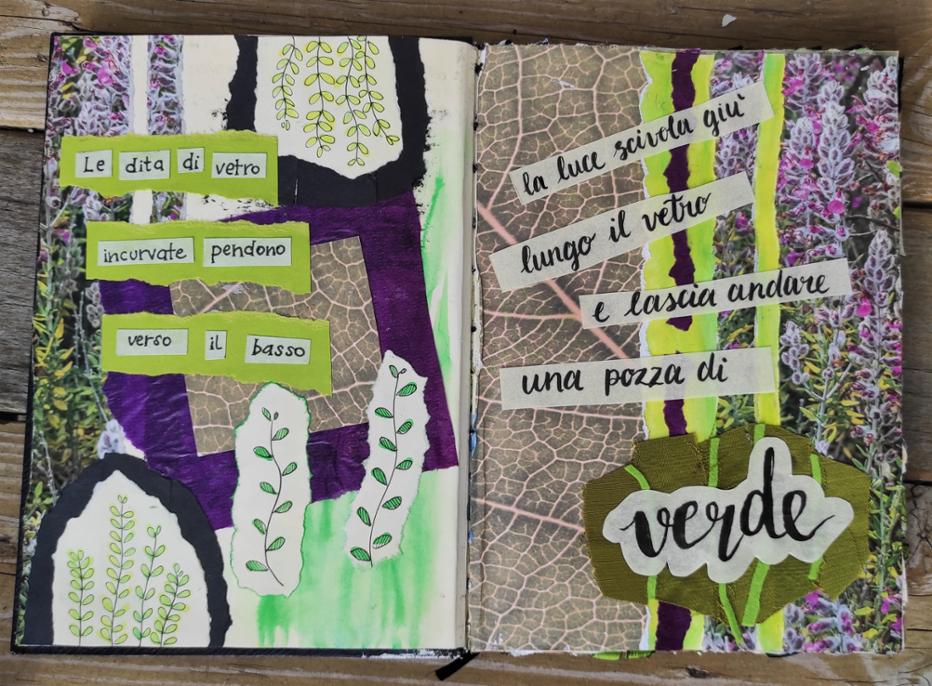 Le dita di vetro
incurvate pendono
verso il basso
la luce scivola giu'
lungo il vetro
e lascia andare
una pozza di
verde